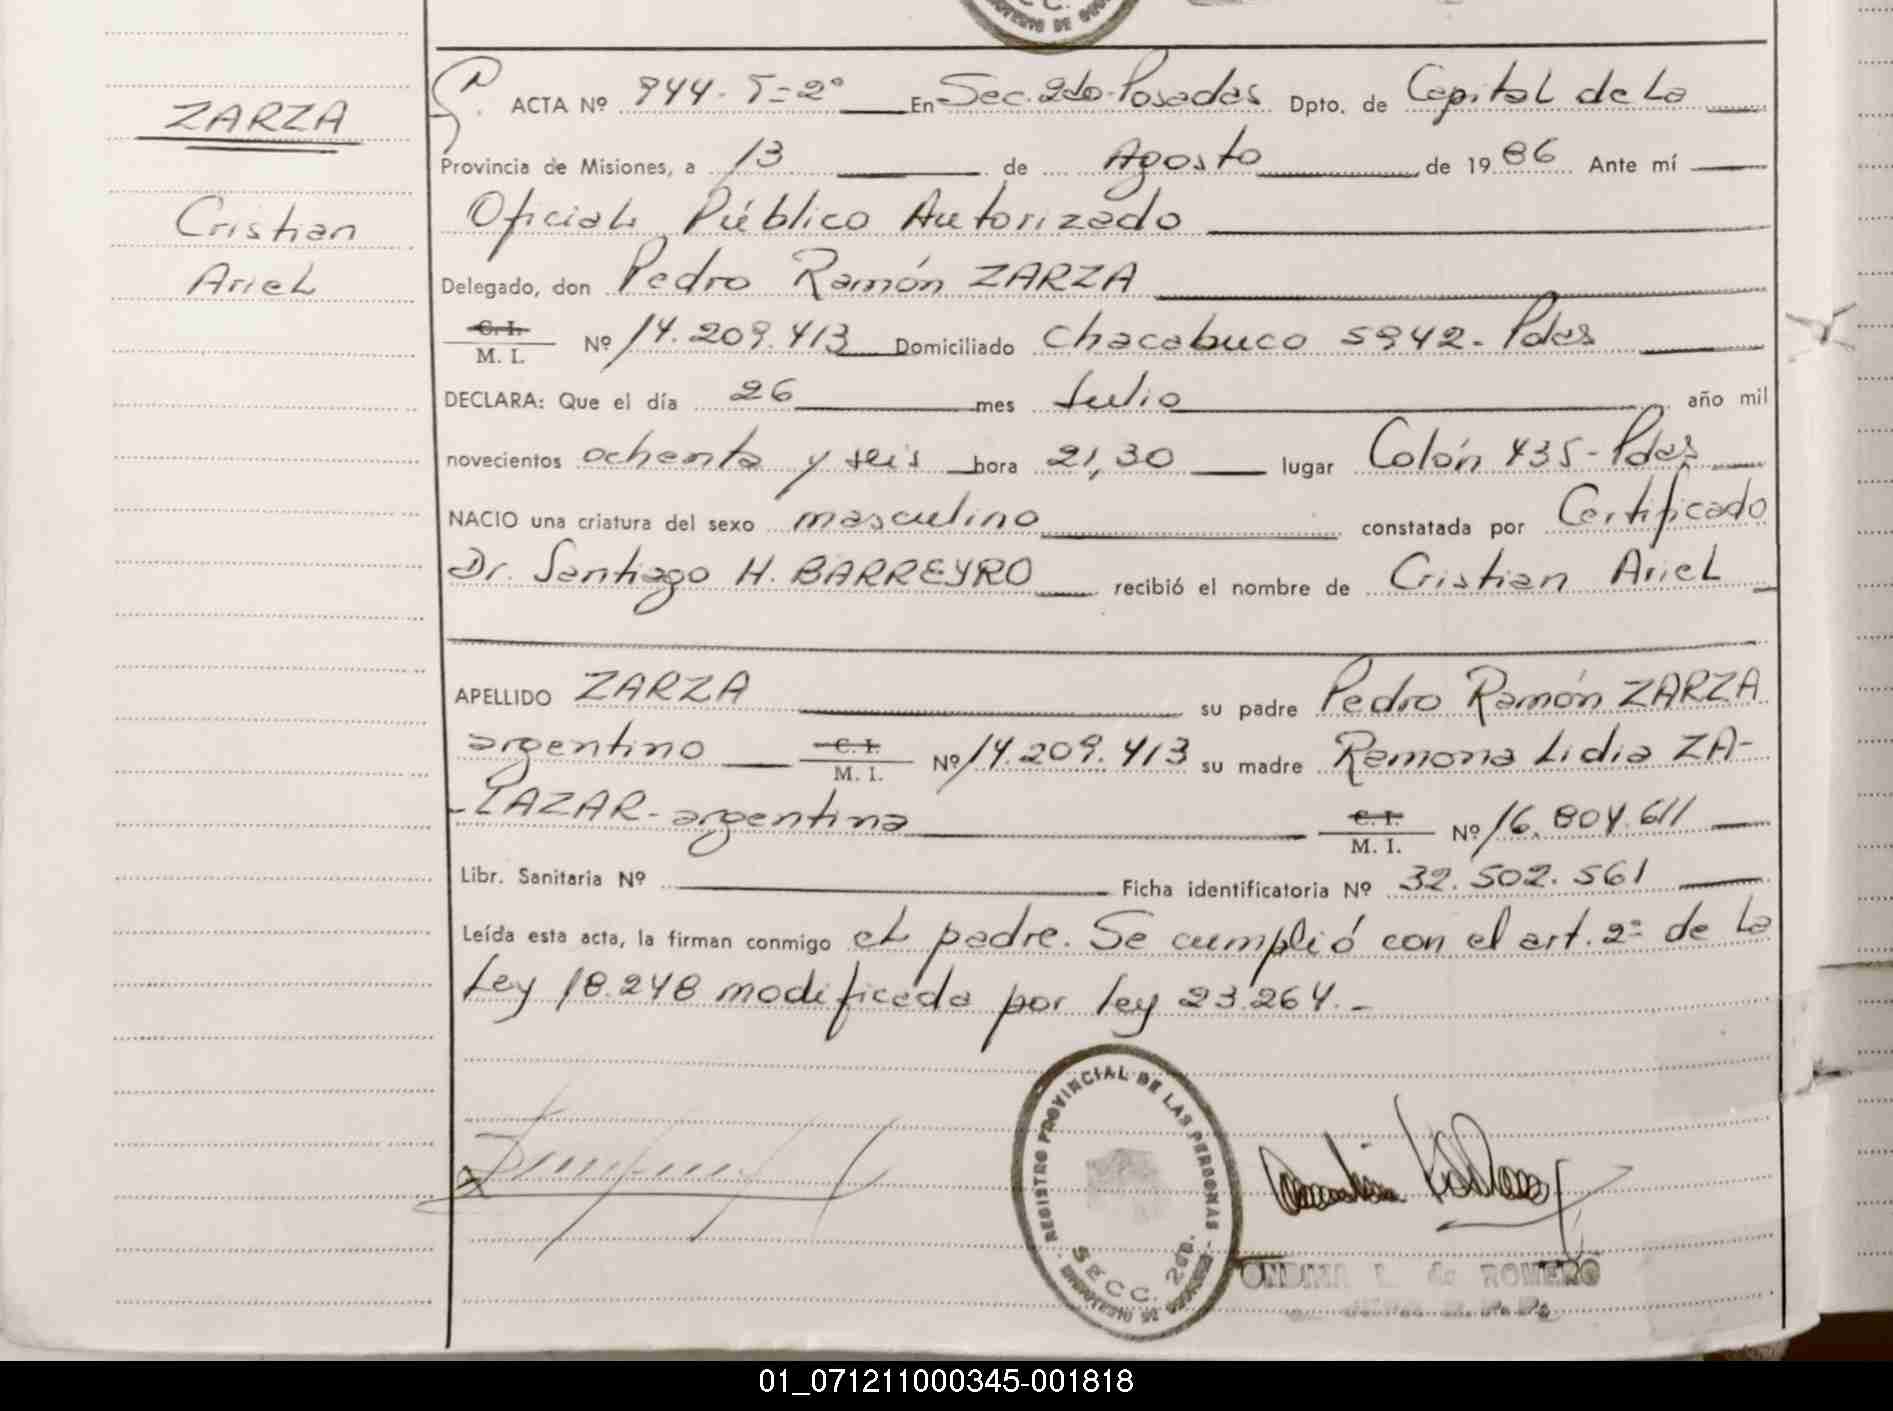 ZARZA
Cristian
Ariel
ACTA Nº 944-T=2º En Sec. 2da-Posadas Dpto. de Capital de La
Provincia de Misiones, a 13 de Agosto de 1986 Ante mí
Oficial Público Autorizado
Delegado, don Pedro Ramón ZARZA
C. I.
M. I. Nº 14.209.413 Domiciliado Chacabuco 5942-Pdas
DECLARA: Que el día 26 mes Julio año mil
novecientos ochenta y seis hora 21,30 lugar Colón 435-Pdas
NACIO una criatura del sexo masculino constatada por Certificado
Dr. Santiago H. BARREYRO recibió el nombre de Cristian Ariel
APELLIDO ZARZA su padre Pedro Ramón ZARZA
argentino C. I.
M. I. Nº 14.209.413 su madre Ramona Lidia ZA-
-LAZAR-argentina C. I.
M. I. Nº 16.804.611
Libr. Sanitaria Nº Ficha identificatoria Nº 32.502.561
Leída esta acta, la firman conmigo el padre. Se cumplió con el art. 2º de La
Ley 18.248 modificada por ley 23.264.-
REGISTRO PROVINCIAL DE LAS PERSONAS
SECC. 2da.
de ROMERO
01_071211000345-001818